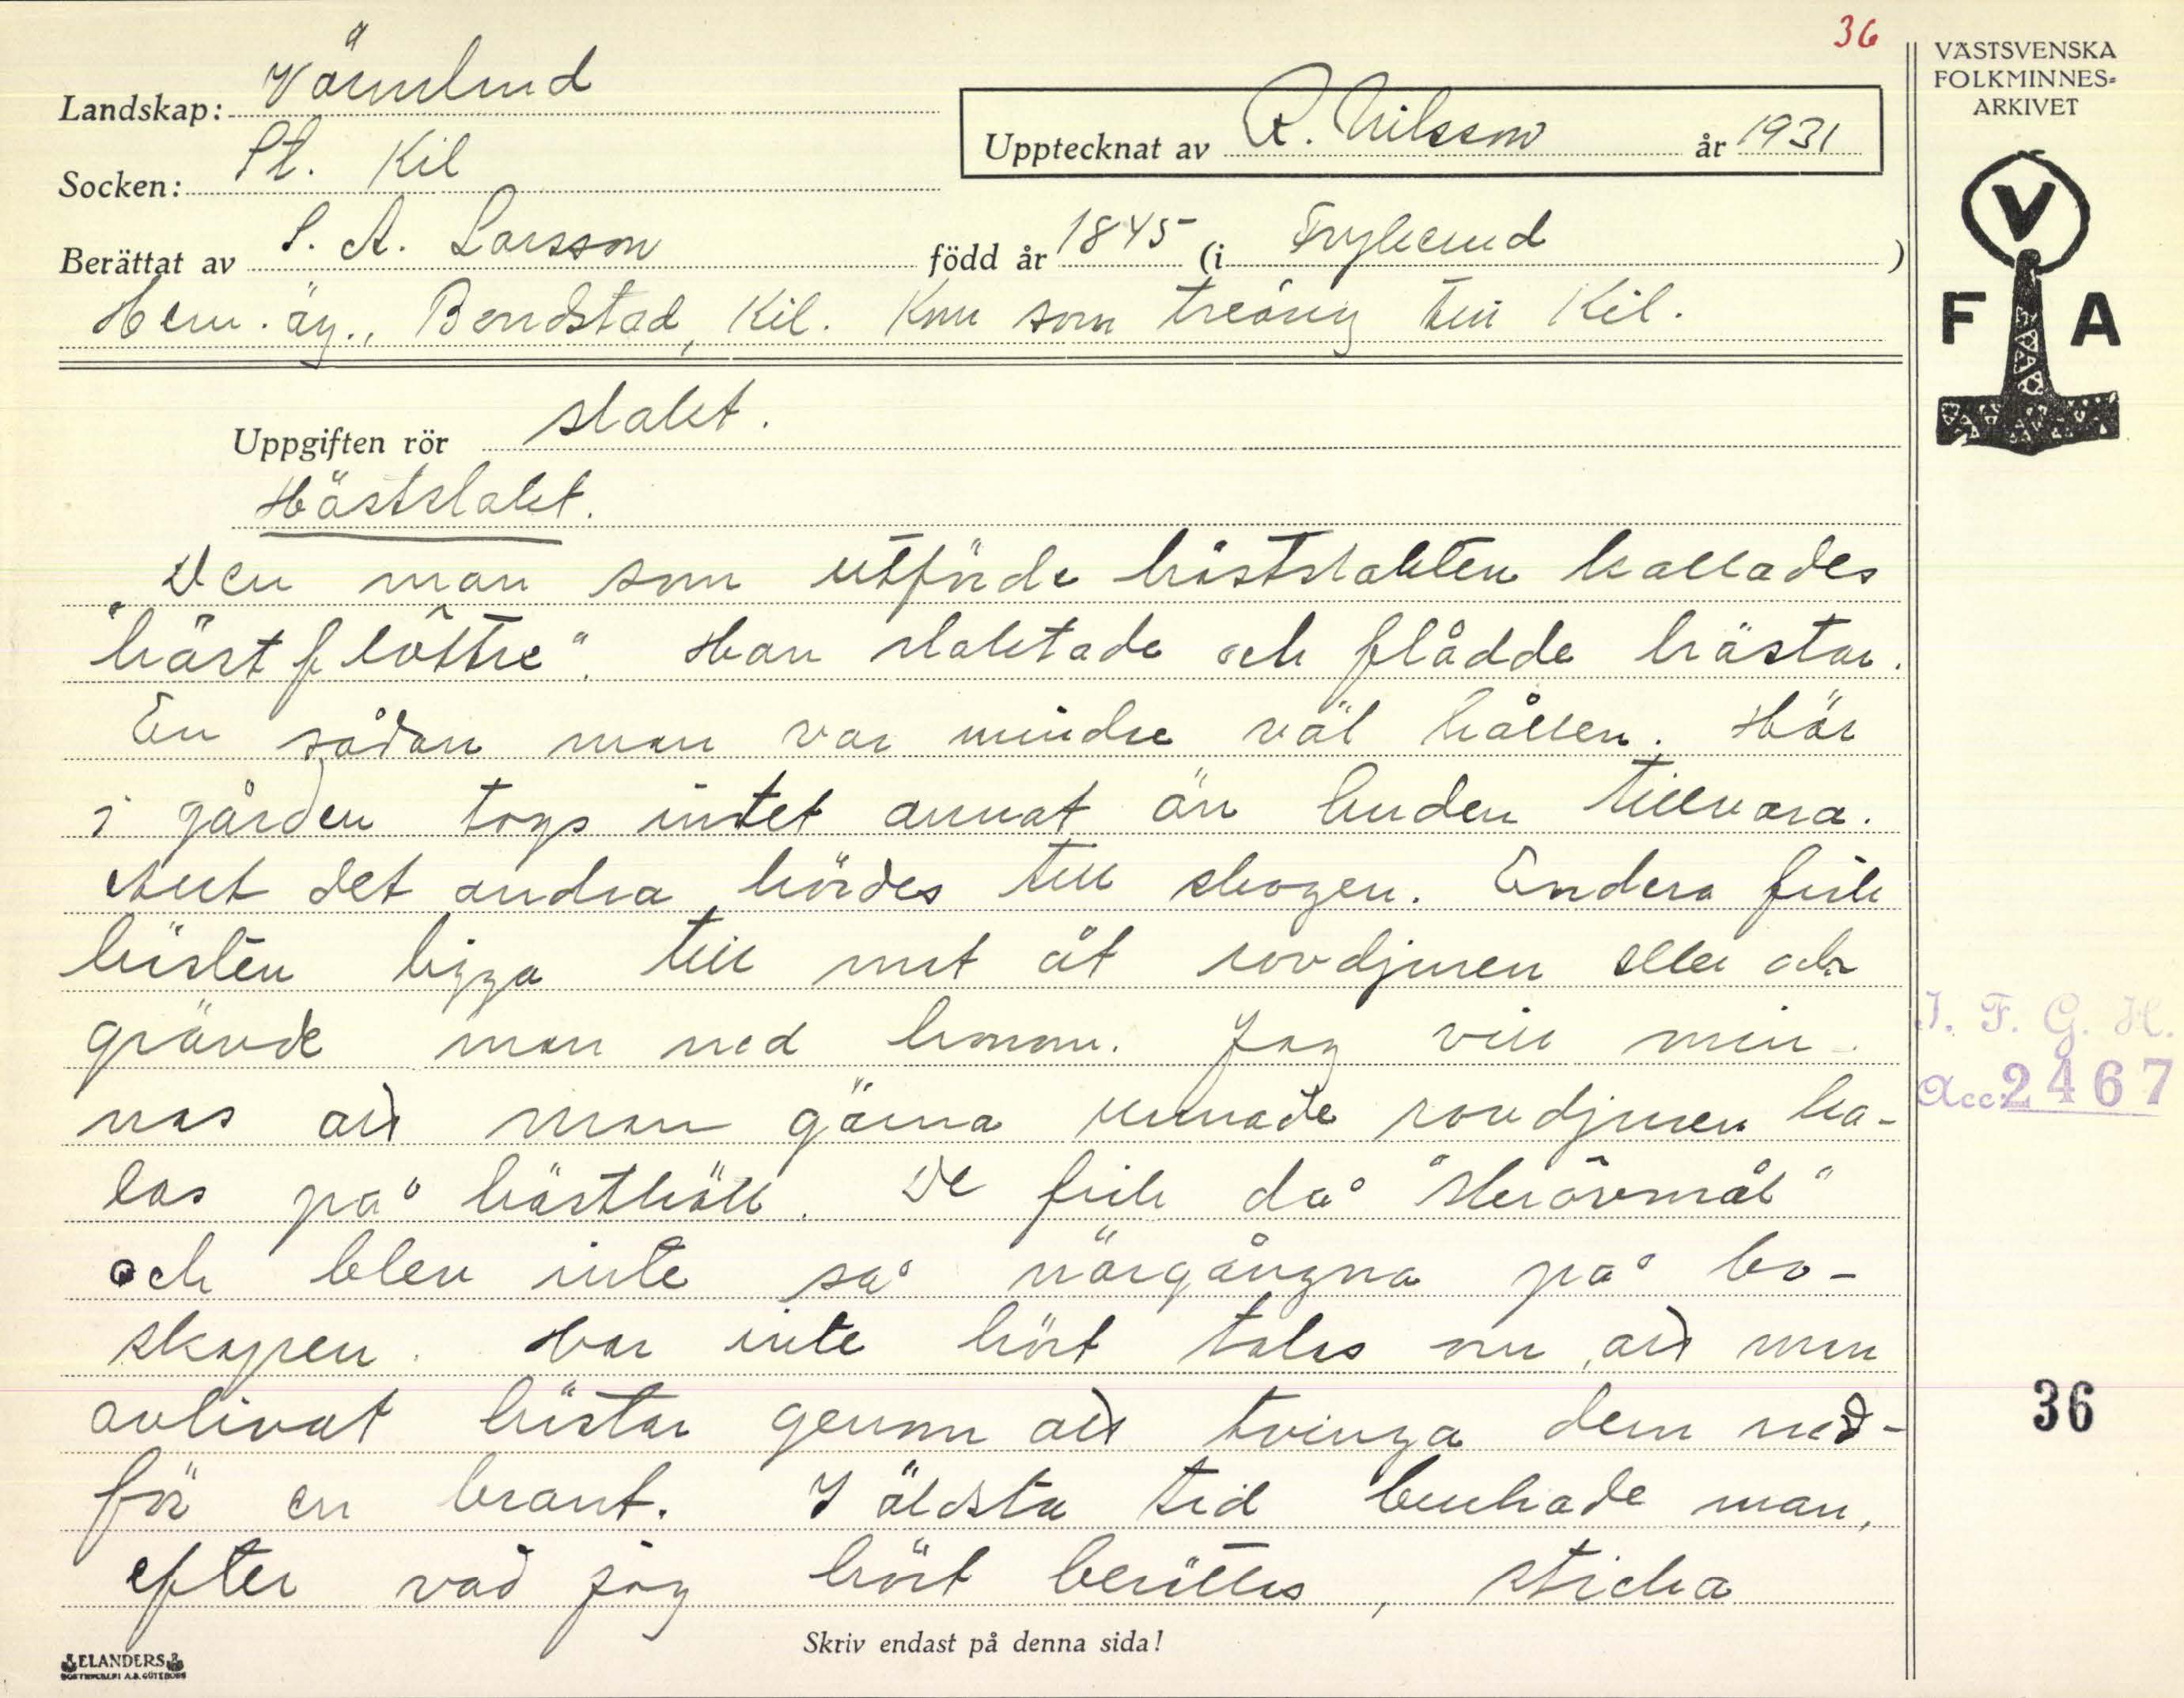 36
VÄSTSVENSKA
FOLKMINNES=
ARKIVET
V
F A
Landskap: Värmland
Upptecknat av R. Nilsson år 1931
Socken: St. Kil
Berättat av S. A. Larsson född år 1845 (i Frykerud)
Hem.äg., Bondstad, Kil. Kom som treåring till Kil.
Uppgiften rör slakt.
Hästslakt.
Den man som utförde hästslakten kallades
"hästflôttre". Han slaktade och flådde hästar.
En sådan man var mindre väl hållen. Här
i gården togs intet annat än huden tillvara.
Allt det andra kördes till skogen. Endera fick
hästen ligga till mat åt rovdjuren eller ock
grävde man ned honom. Jag vill min-
nas att man gärna unnade rovdjuren ka-
las på hästkött. De fick då "skrôvmål"
och blev inte så närgångna på bo-
skapen. Har inte hört talas om, att man
avlivat hästar genom att tvinga dem ned-
för en brant. I äldsta tid brukade man,
efter vad jag hört berättas, sticka
J. F. G. H.
Acc. 2467
36
Skriv endast på denna sida!
ELANDERS
BOKTRYCKERI A.B. GÖTEBORG